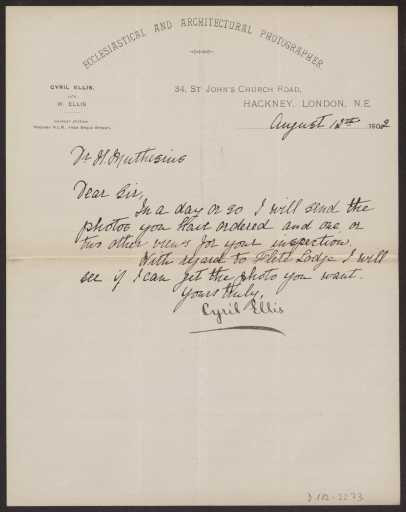 ECCLESIASTICAL AND ARCHITECTURAL PHOTOGRAPHER
CYRIL ELLIS,
W. ELLIS
34, ST JOHN'S CHURCH ROAD,
HACKNEY, LONDON, N.E.
August 12th 1902
Dr H. Muthesius
Dear Sir,
In a day or so I will send the
photos you have ordered and one or
two other views for your inspection.
With regard to Lodge I will
see if I can get the photo you want.
Yours truly,
Cyril Ellis